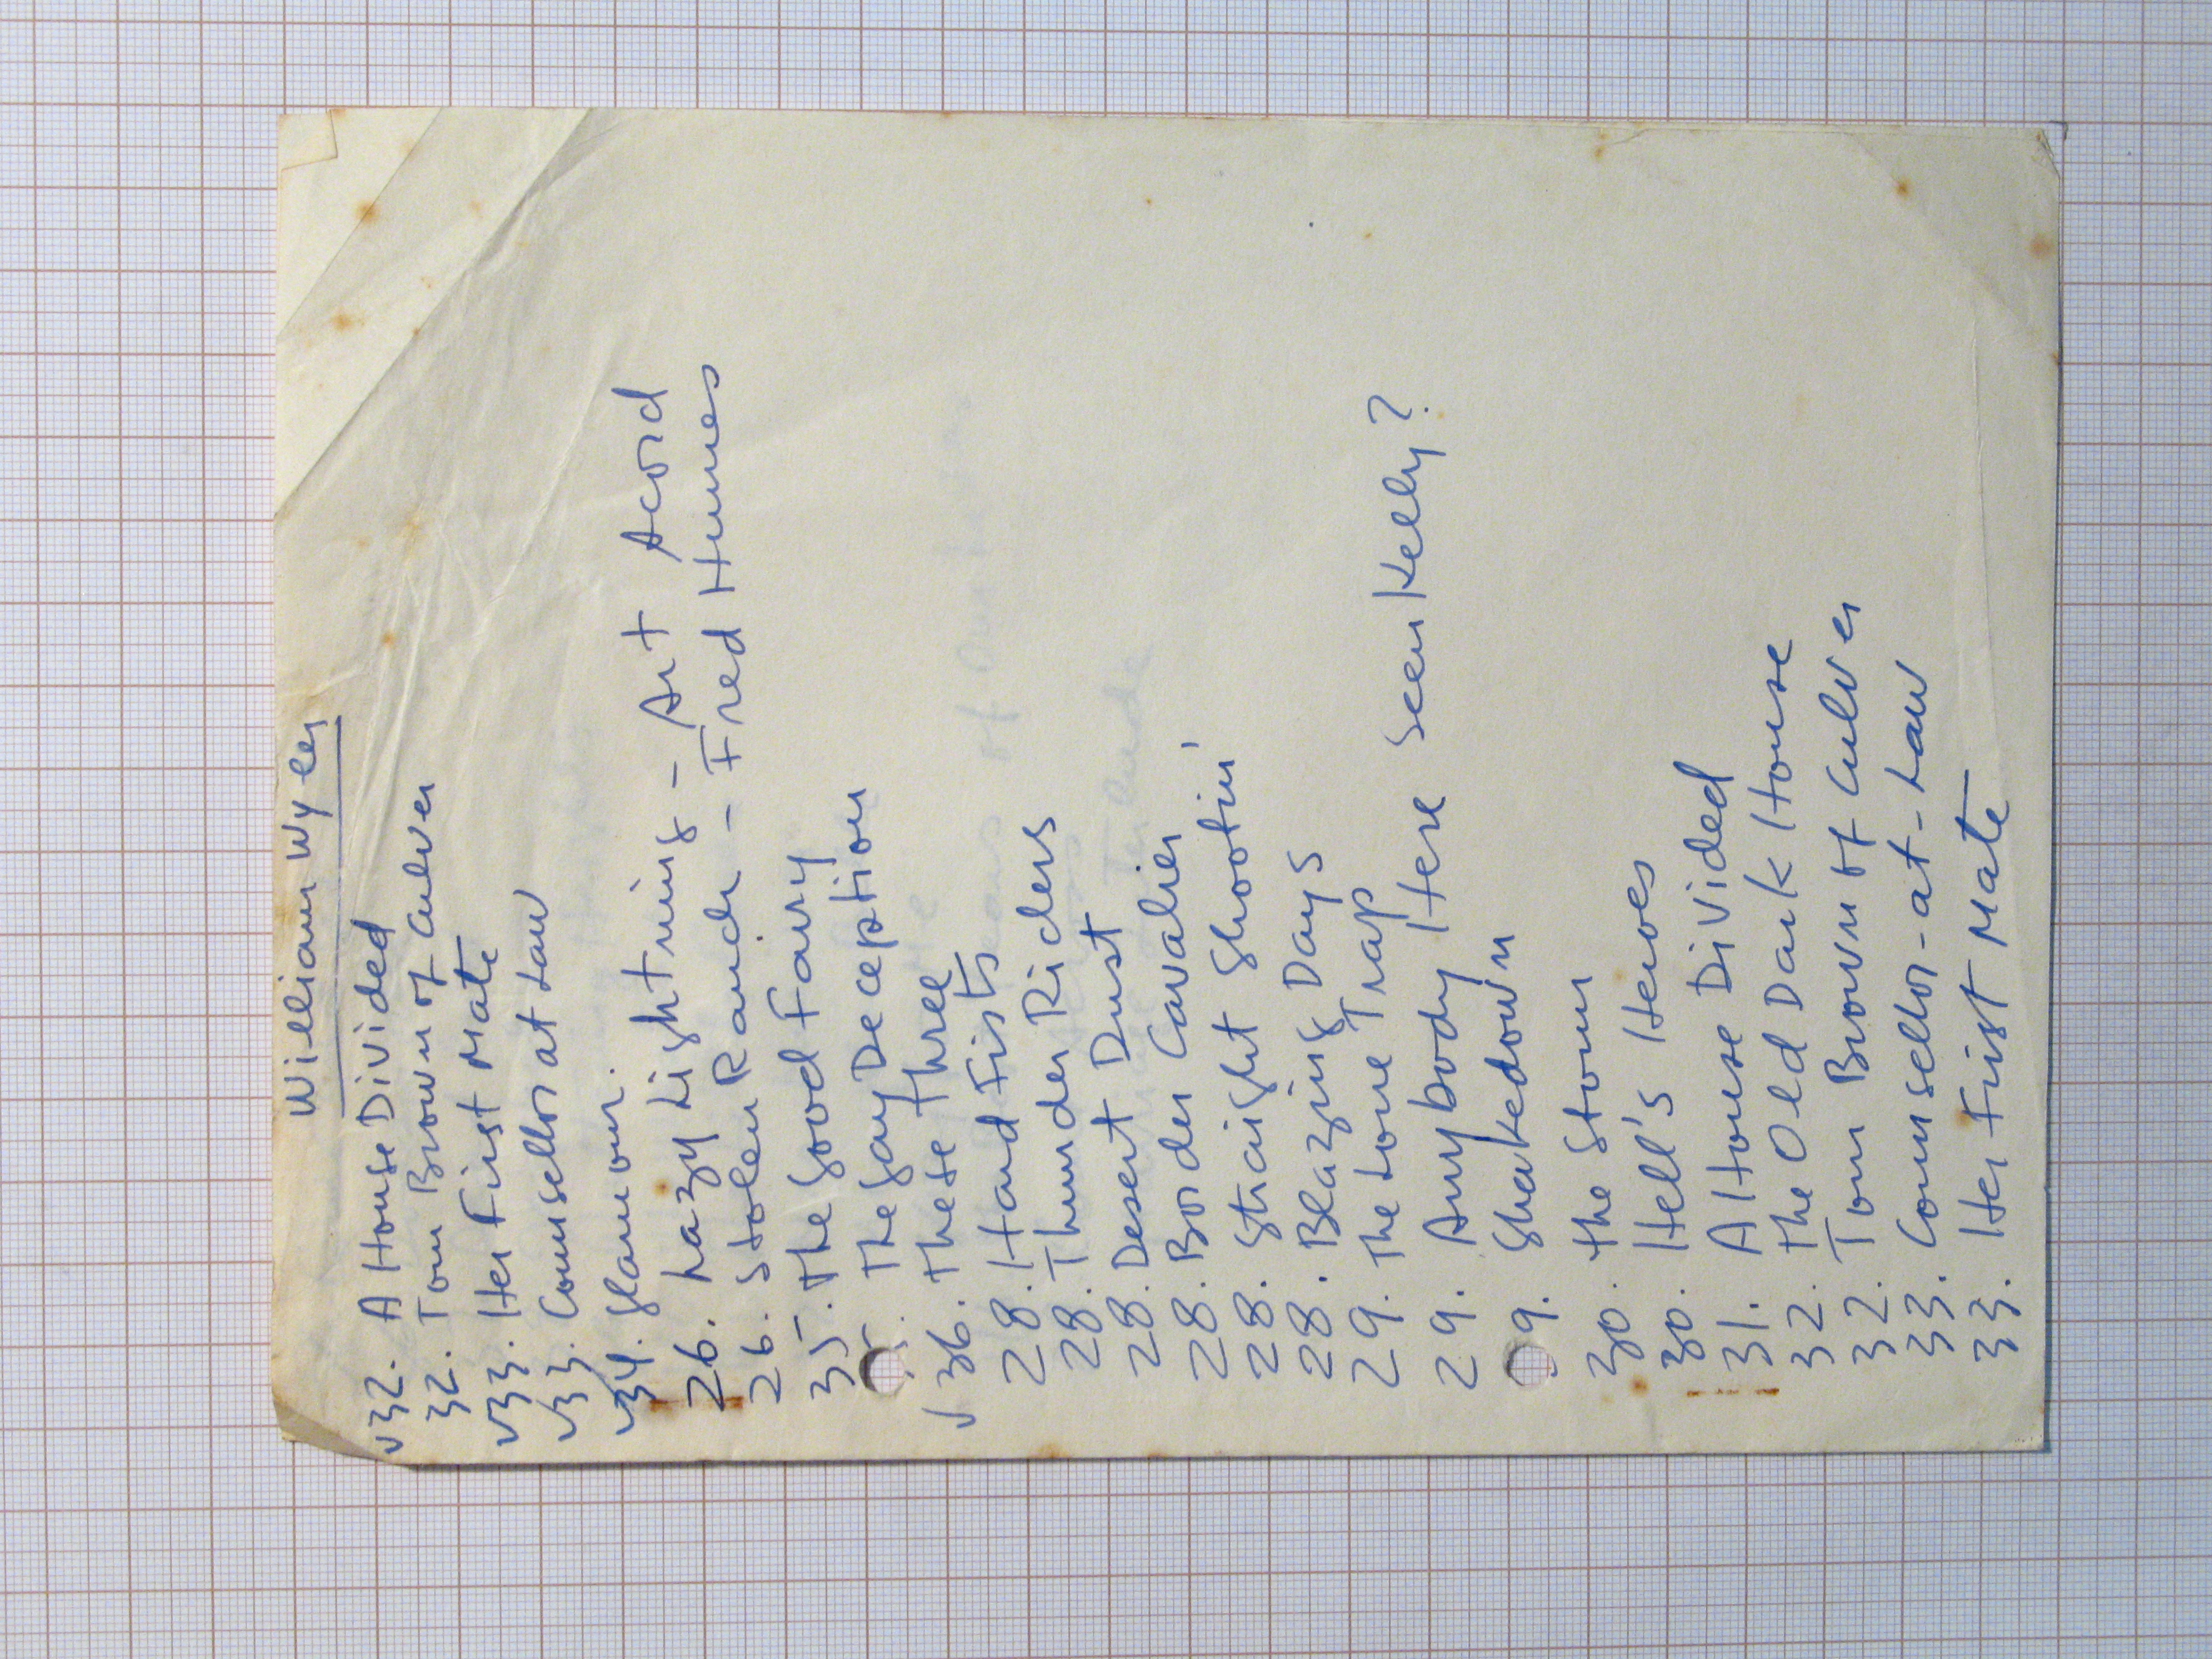 William Wyler
√32. A House Divided
32. Tom Brown of Culver
√33. Her First Mate
√33. Counsellor at Law
√34. Glamour.
26. Lazy Lightning - Art Acord
26. Stolen Ranch - Fred Humes
35. The Good Fairy
The Gay Deception
√ 36. These Three
28. Hard Fists
28. Thunder Riders
28. Desert Dust
28. Border Cavalier
28. Straight Shootin'
28. Blazing Days
29. The Lone Trap
29. Anybody Here Seen Kelly?
9. Shakedown
30. The Storm
30. Hell's Heroes
31. A House Divided
32. The Old Dark House
32. Tom Brown of Culver
33. Counsellor-at-Law
33. Her First Mate